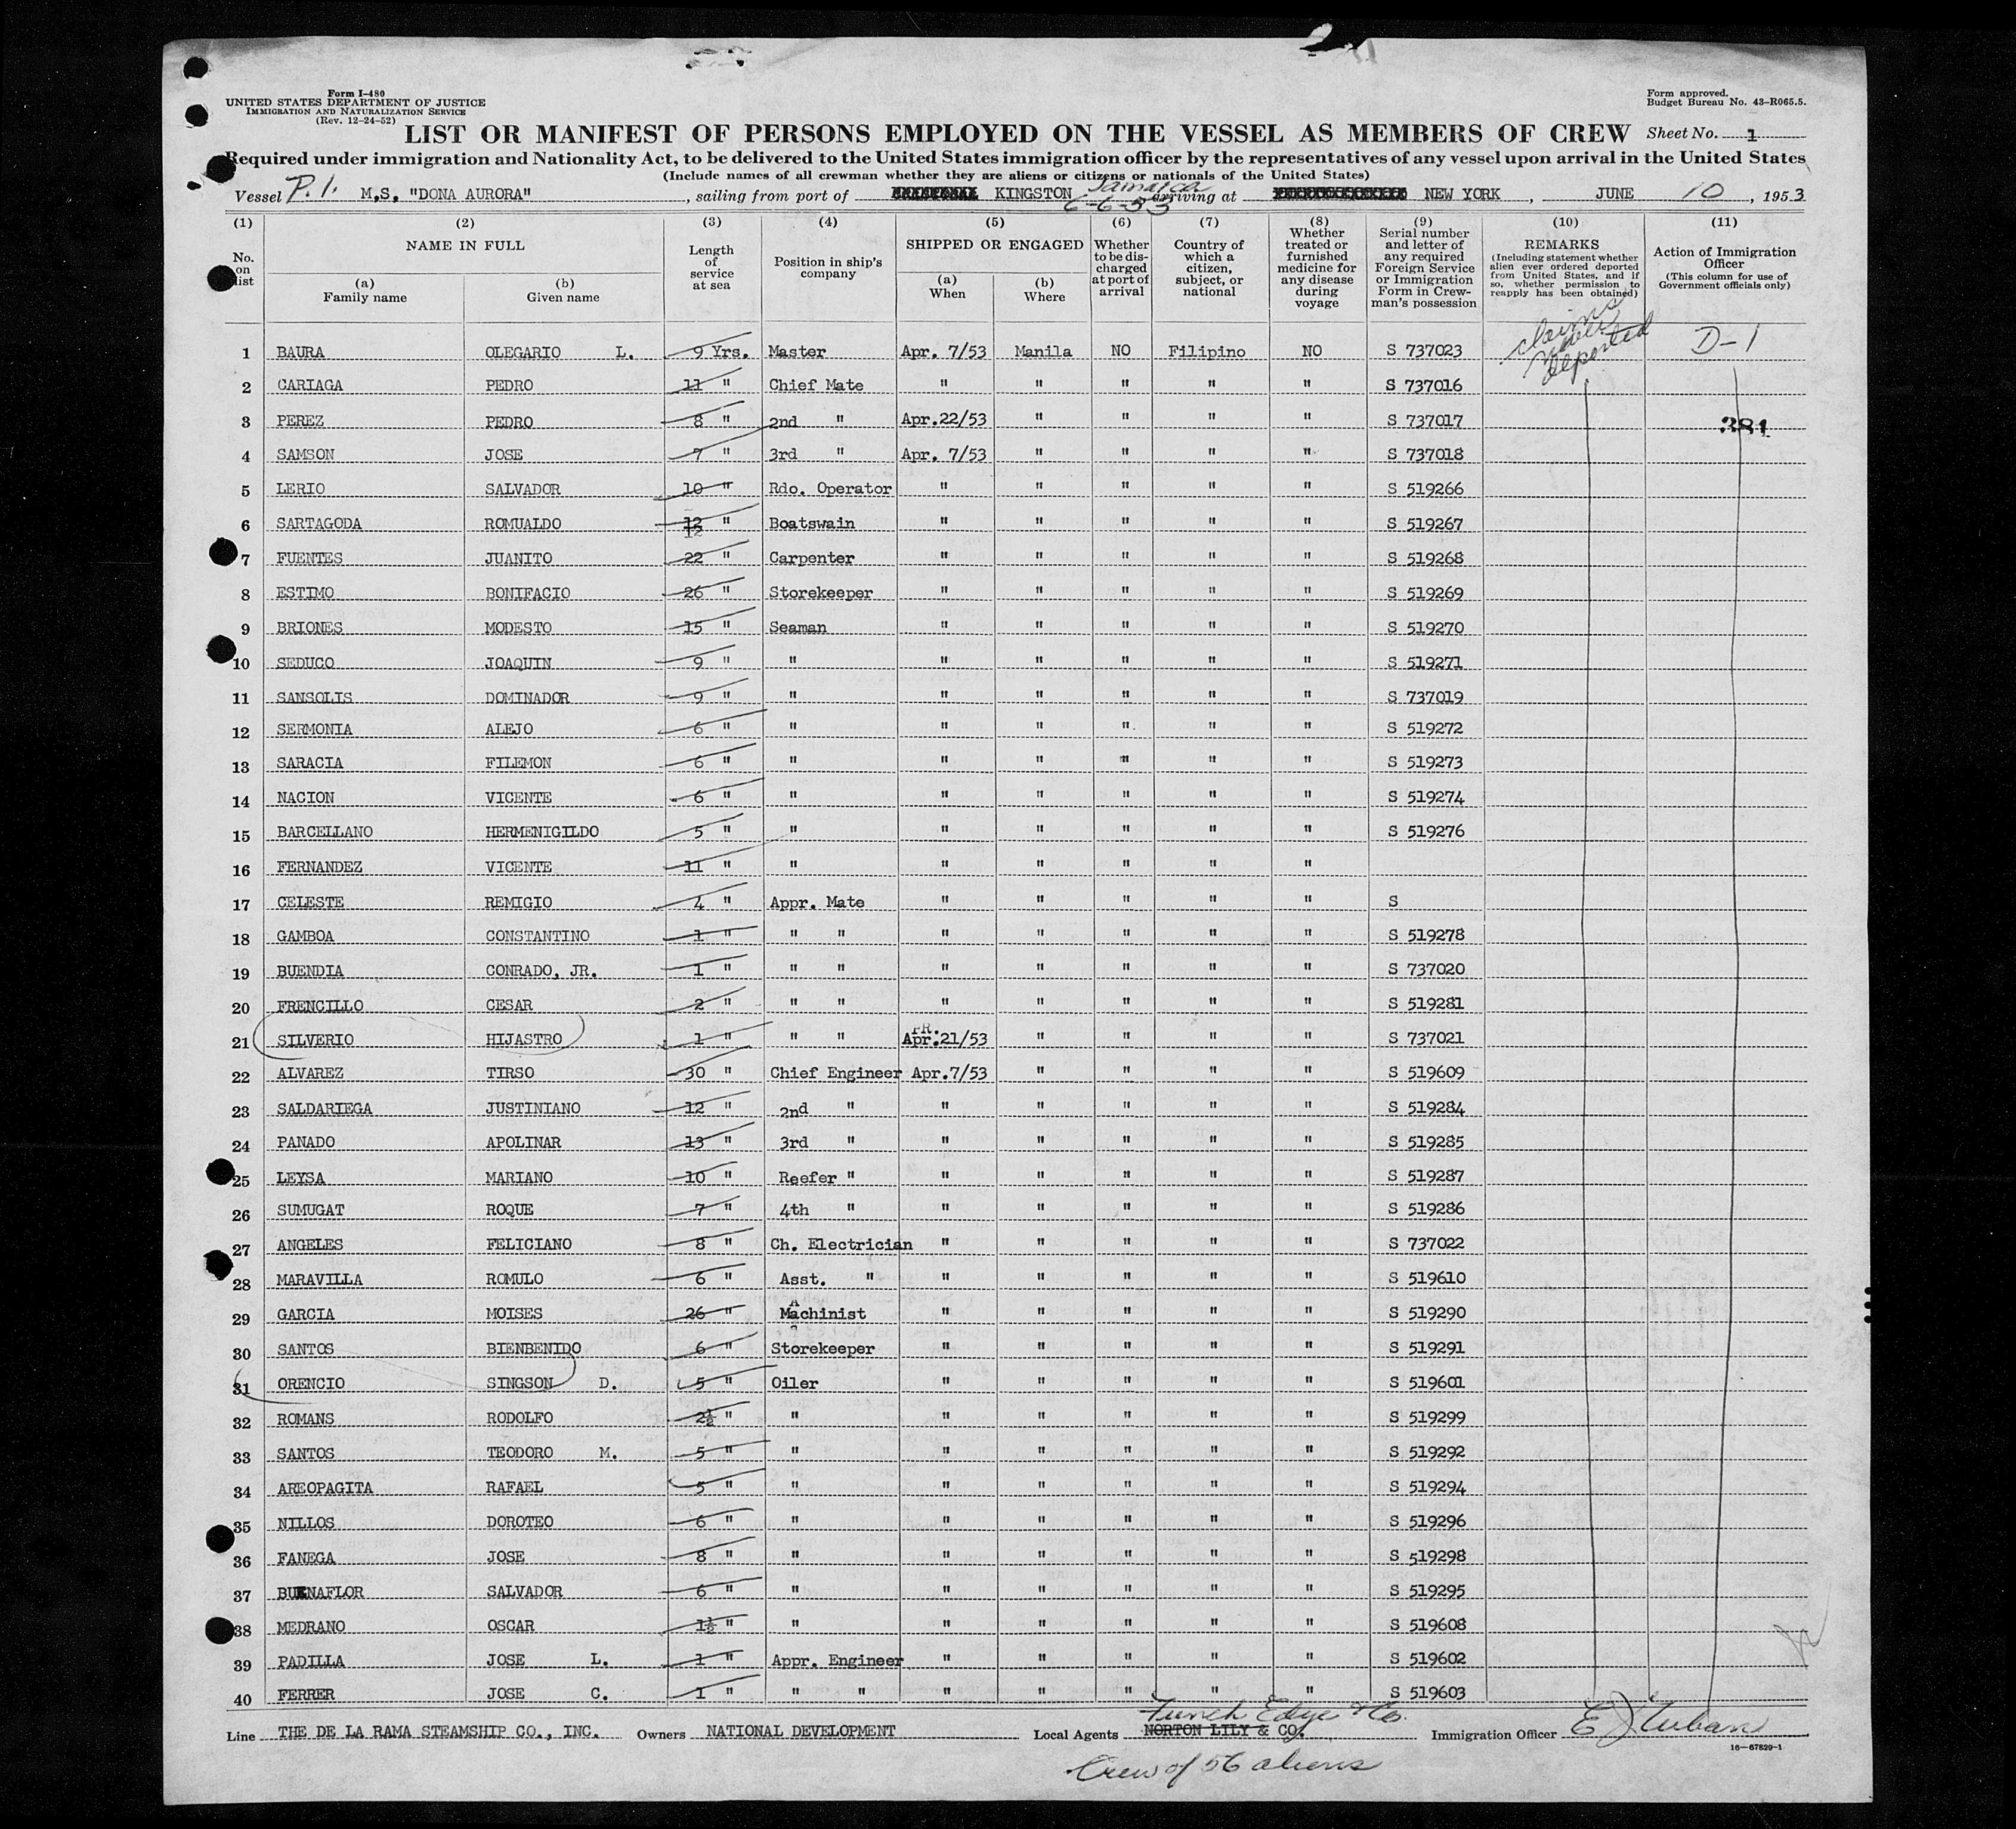 Form I-480
UNITED STATES DEPARTMENT OF JUSTICE
IMMIGRATION AND NATURALIZATION SERVICE
(Rev. 12-24-52)
Form approved.
Budget Bureau No. 43-R065.5.
LIST OR MANIFEST OF PERSONS EMPLOYED ON THE VESSEL AS MEMBERS OF CREW Sheet No. 1
Required under immigration and Nationality Act, to be delivered to the United States immigration officer by the representatives of any vessel upon arrival in the United States
(Include names of all crewman whether they are aliens or citizens or nationals of the United States)
Vessel P.I. M.S. "DONA AURORA", sailing from port of KINGSTON Jamaica 6-6-53 arriving at NEW YORK, JUNE 10, 1953
(1) (2) (3) (4) (5) (6) (7) (8) (9) (10) (11)
No. on list
NAME IN FULL
(a) Family name
(b) Given name
Length of service at sea
Position in ship's company
SHIPPED OR ENGAGED
(a) When
(b) Where
Whether to be discharged at port of arrival
Country of which a citizen, subject, or national
Whether treated or furnished medicine for any disease during voyage
Serial number and letter of any required Foreign Service or Immigration Form in Crewman's possession
REMARKS
(Including statement whether alien ever ordered deported from United States, and if so, whether permission to reapply has been obtained)
Action of Immigration Officer
(This column for use of Government officials only)
1 BAURA OLEGARIO L. 9 Yrs. Master Apr. 7/53 Manila NO Filipino NO S 737023 claims never deported D-1
2 CARIAGA PEDRO 11 " Chief Mate " " " " " S 737016
3 PEREZ PEDRO 8 " 2nd " Apr.22/53 " " " " S 737017 381
4 SAMSON JOSE 7 " 3rd " Apr. 7/53 " " " " S 737018
5 LERIO SALVADOR 10 " Rdo. Operator " " " " " S 519266
6 SARTAGODA ROMUALDO 12 " Boatswain " " " " " S 519267
12
7 FUENTES JUANITO 22 " Carpenter " " " " " S 519268
8 ESTIMO BONIFACIO 26 " Storekeeper " " " " " S 519269
9 BRIONES MODESTO 15 " Seaman " " " " " S 519270
10 SEDUCO JOAQUIN 9 " " " " " " " S 519271
11 SANSOLIS DOMINADOR 9 " " " " " " " S 737019
12 SERMONIA ALEJO 6 " " " " " " " S 519272
13 SARACIA FILEMON 6 " " " " " " " S 519273
14 NACION VICENTE 6 " " " " " " " S 519274
15 BARCELLANO HERMENIGILDO 5 " " " " " " " S 519276
16 FERNANDEZ VICENTE 11 " " " " " " "
17 CELESTE REMIGIO 4 " Appr. Mate " " " " " S
18 GAMBOA CONSTANTINO 1 " " " " " " " " S 519278
19 BUENDIA CONRADO, JR. 1 " " " " " " " " S 737020
20 FRENCILLO CESAR 2 " " " " " " " " S 519281
21 SILVERIO HIJASTRO 1 " " " Apr.21/53 " " " " S 737021
22 ALVAREZ TIRSO 30 " Chief Engineer Apr.7/53 " " " " S 519609
23 SALDARIEGA JUSTINIANO 12 " 2nd " " " " " " S 519284
24 PANADO APOLINAR 13 " 3rd " " " " " " S 519285
25 LEYSA MARIANO 10 " Reefer " " " " " " S 519287
26 SUMUGAT ROQUE 7 " 4th " " " " " " S 519286
27 ANGELES FELICIANO 8 " Ch. Electrician " " " " " S 737022
28 MARAVILLA ROMULO 6 " Asst. " " " " " " S 519610
29 GARCIA MOISES 26 " Machinist " " " " " S 519290
30 SANTOS BIENBENIDO 6 " Storekeeper " " " " " S 519291
31 ORENCIO SINGSON D. 5 " Oiler " " " " " S 519601
32 ROMANS RODOLFO 2½ " " " " " " " S 519299
33 SANTOS TEODORO M. 5 " " " " " " " S 519292
34 AREOPAGITA RAFAEL 5 " " " " " " " S 519294
35 NILLOS DOROTEO 6 " " " " " " " S 519296
36 FANEGA JOSE 8 " " " " " " " S 519298
37 BUENAFLOR SALVADOR 6 " " " " " " " S 519295
38 MEDRANO OSCAR 1½ " " " " " " " S 519608
39 PADILLA JOSE L. 1 " Appr. Engineer " " " " " S 519602
40 FERRER JOSE C. 1 " " " " " " " " S 519603
Line THE DE LA RAMA STEAMSHIP CO., INC. Owners NATIONAL DEVELOPMENT Local Agents Funch Edye & Co. NORTON LILY & CO. Immigration Officer
16—67829-1
Crew of 56 aliens